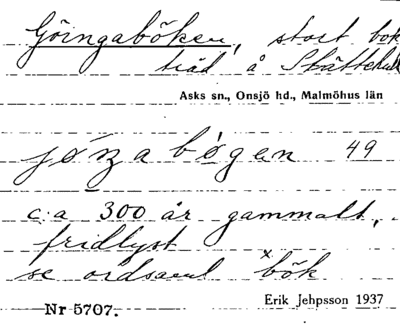 Göingaböken, stort bok
träd å Skättekul
Asks sn., Onsjö hd., Malmöhus län
jøⁿzabogen 49
c:a 300 år gammalt,
fridlyst
se ordsaml ˣbök
Nr 5707. Erik Jehpsson 1937